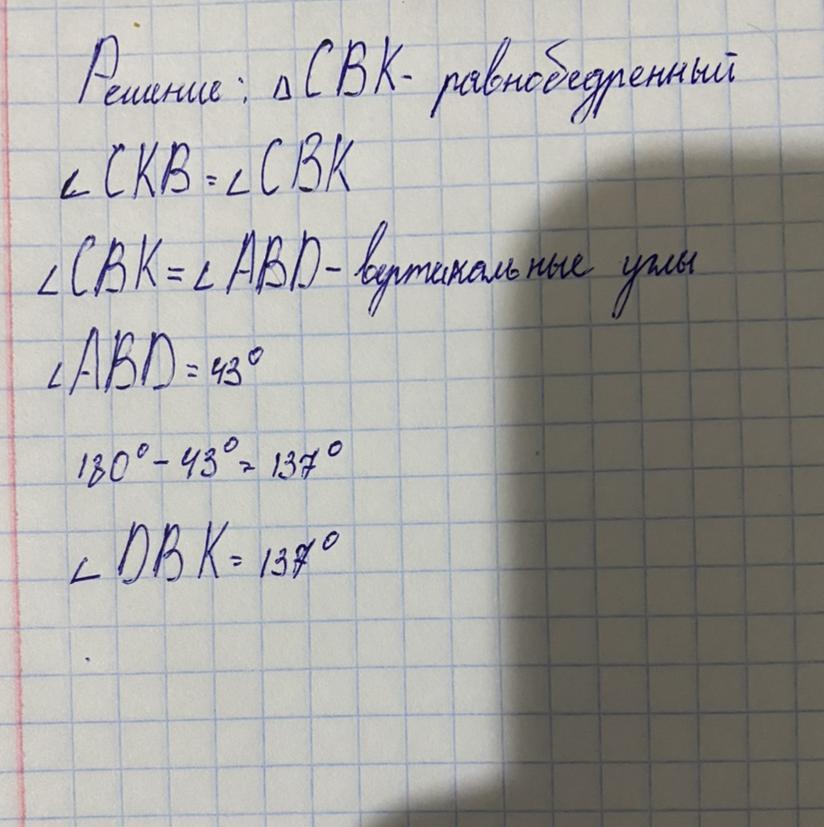 Решение: △CBK- равнобедренный
∠CKB=∠CBK
∠CBK=∠ABD- вертикальные углы
∠ABD=43°
180°-43°=137°
∠DBK=137°